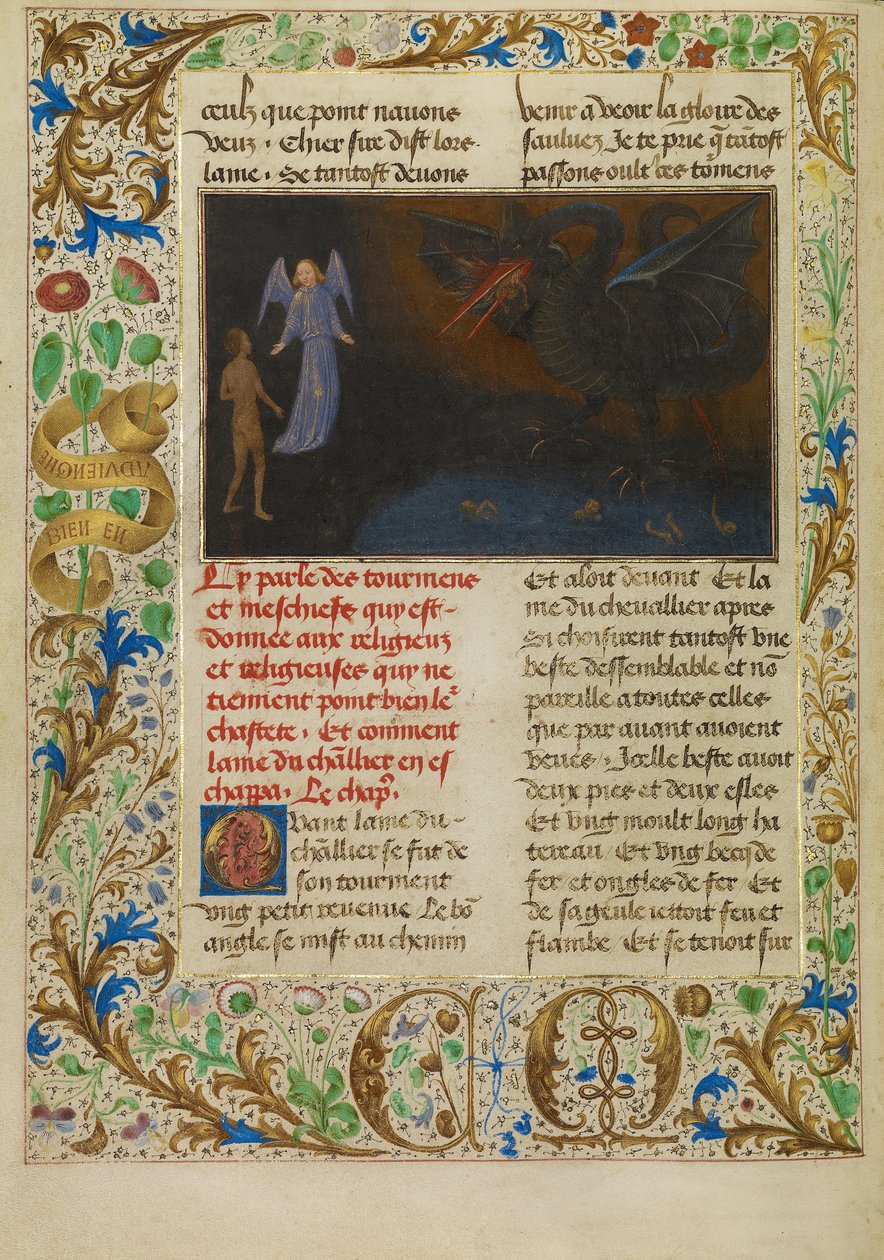 ceulz que point nauons
veuz . Chier sire dist lors
lame . Se tantost deuons
venir a veoir la gloire des
sauluez Je te prie q̄ tātost
passons oult̓ ces to᷑mens
Cy parle des tourmens
et meschiefs quy est-
donnee aux religieuz
et religieuses quy ne
tiennent point bien le᷑
chastete . Et comment
lame du chl̄lier en es
chappa . Le chap̄.
Quant lame du-
chl̄lier se fut de
son tourment
vng petit reuenue Le bō
angle se mist au chemin
Et aloit deuant Et la
me du cheuallier apres
Si choisirent tantost vne
beste dessemblable et nō
pareille a toutes celles
que par auant auoient
veues . Icelle beste auoit
deux pies et deux esles
Et vng moult long ha
tereau . Et vng becq de
fer et ongles de fer Et
de sa geule iettoit feu et
flambe Et se tenoit sur
BIEN EN
ADVIENGNE
C M